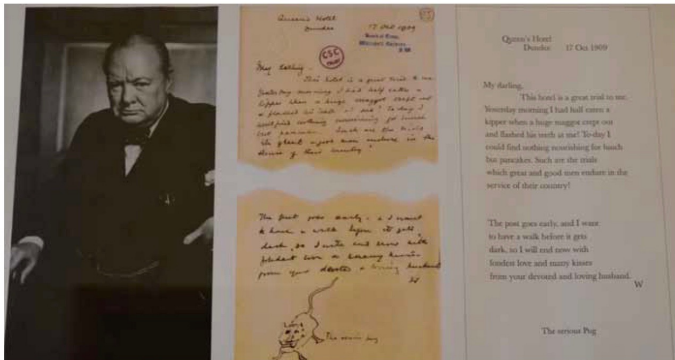 Queen's Hotel
Dundee
17 Oct 1909
CSC
My darling -
This hotel is a great trial to me.
Yesterday morning I had half eaten a
kipper when a huge maggot crept out
& flashed his teeth at me! To-day I
could find nothing nourishing for lunch
but pancakes. Such are the trials
which great & good men endure in the
service of their country!
The post goes early, & I want
to have a walk before it gets
dark, so I will end now with
fondest love & many kisses
from your devoted & loving husband
W
The serious pug
Queen's Hotel
Dundee 17 Oct 1909
My darling,
This hotel is a great trial to me.
Yesterday morning I had half eaten a
kipper when a huge maggot crept out
and flashed his teeth at me! To-day I
could find nothing nourishing for lunch
but pancakes. Such are the trials
which great and good men endure in the
service of their country!
The post goes early, and I want
to have a walk before it gets
dark, so I will end now with
fondest love and many kisses
from your devoted and loving husband.
W
The serious Pug